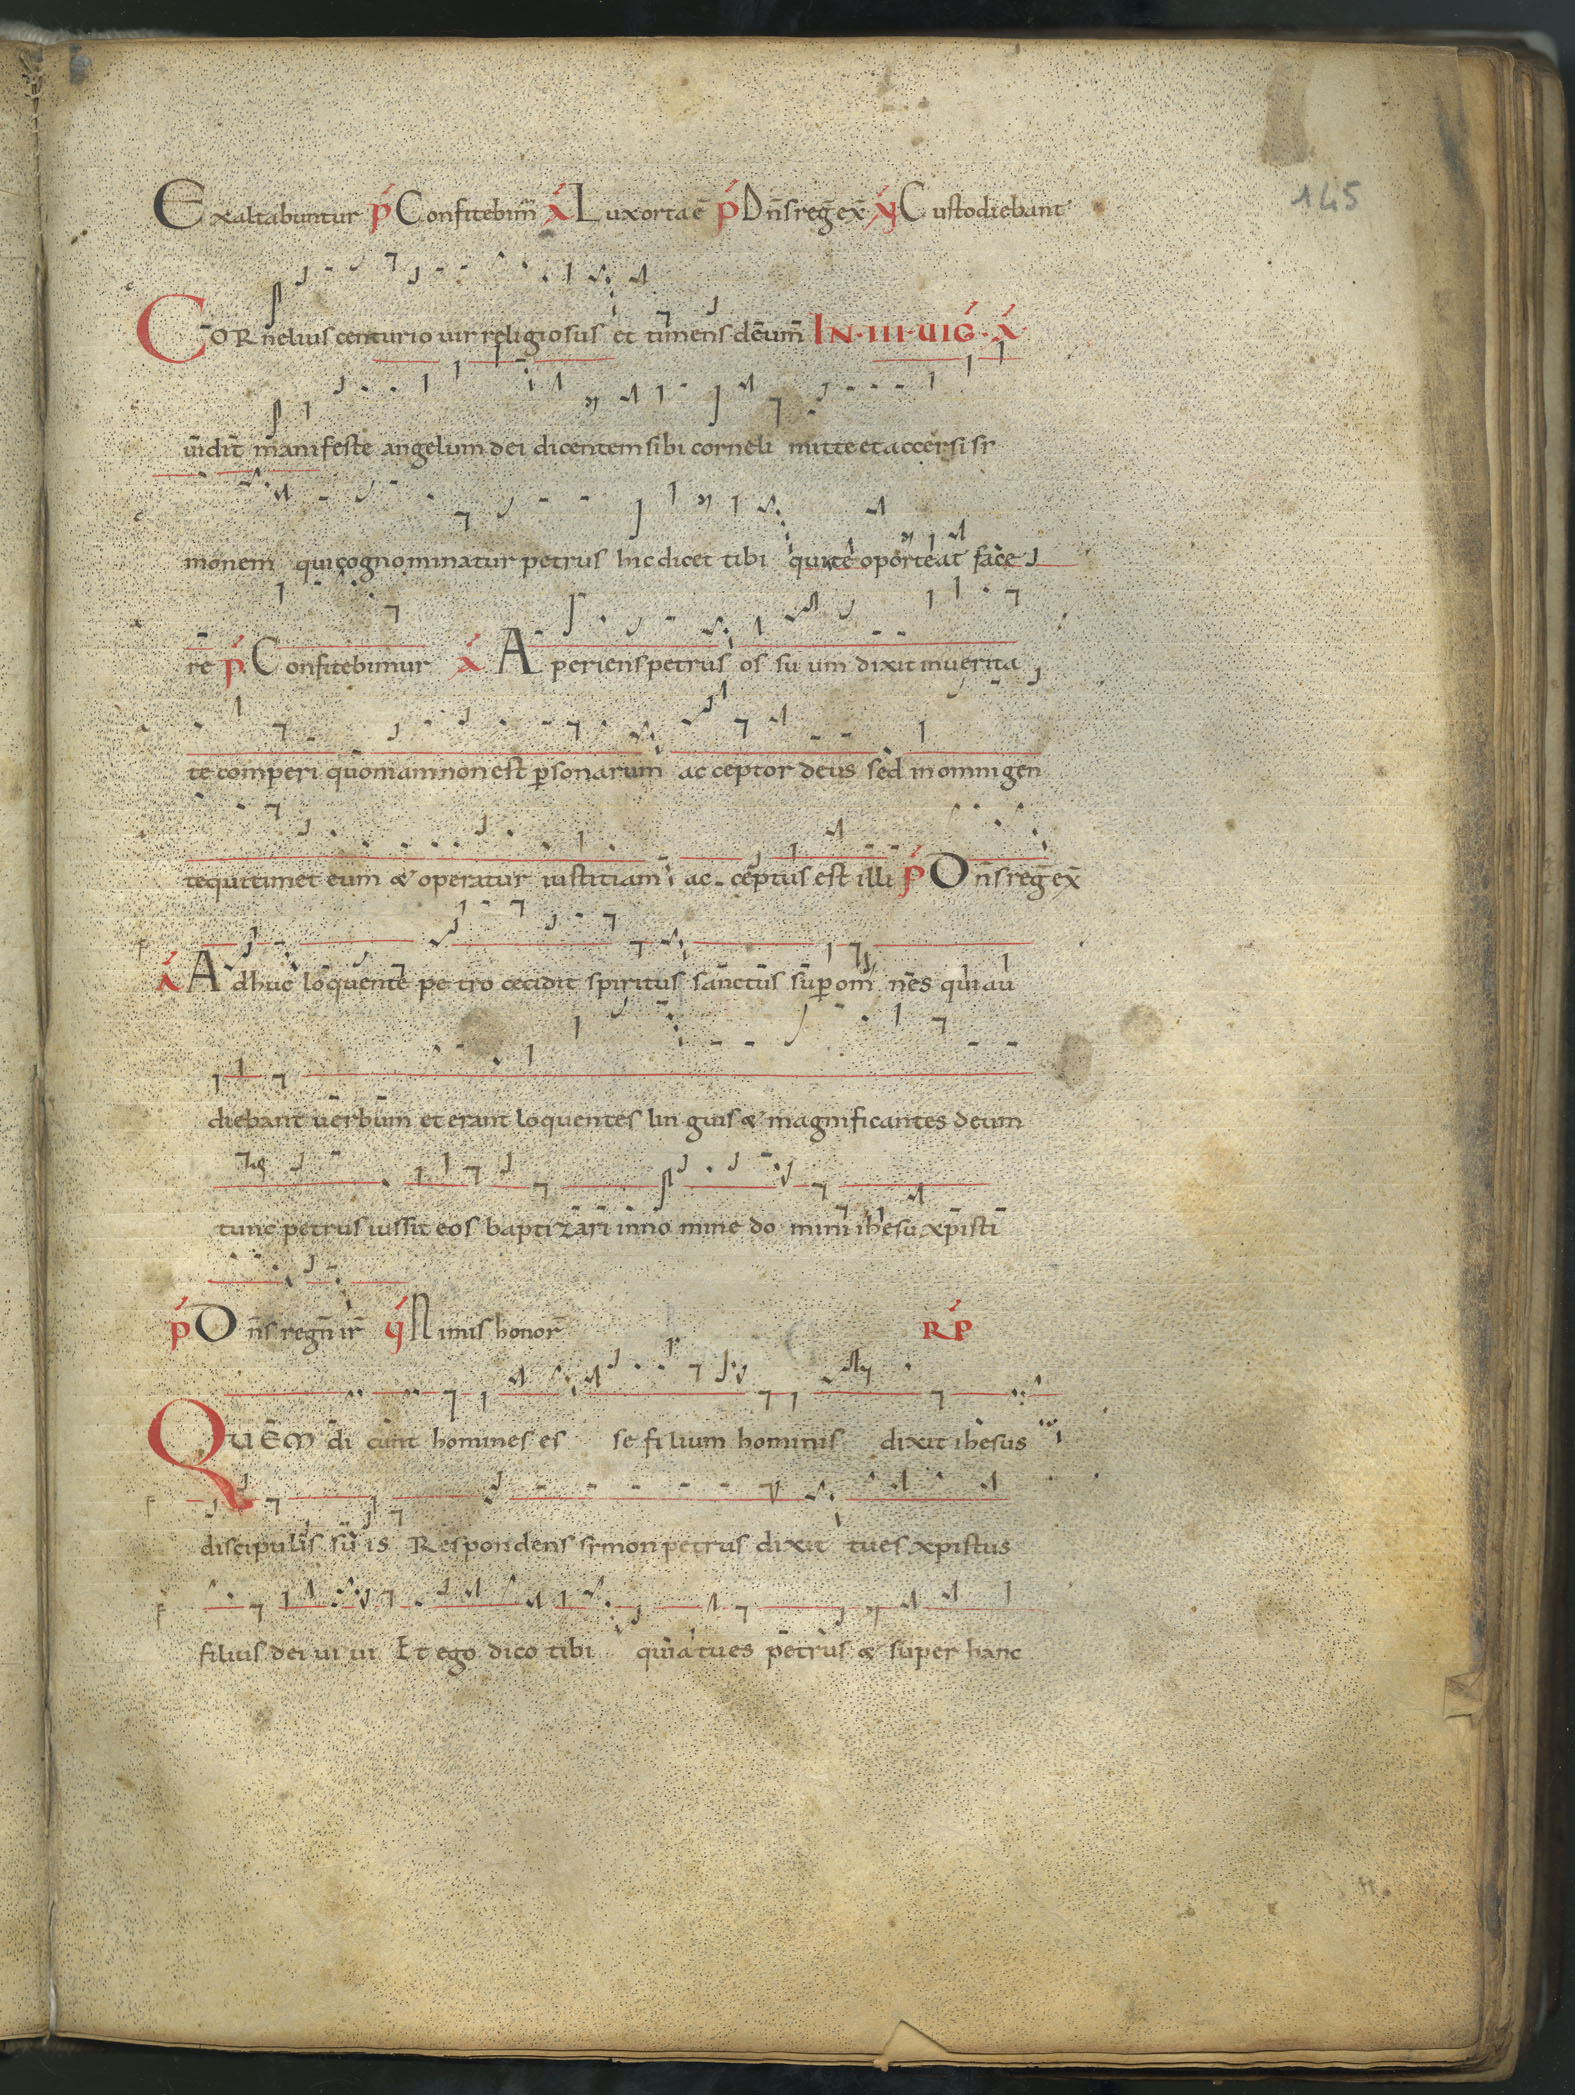 145
Exaltabuntur p̄ Confitebim̄ Ā Lux orta ē p̄ Dn̄s reḡ ex̄ ꝟ Custodiebant
CORnelius centurio uir religiosus et timens deum IN·III·UIḠ·Ā
uidit manifeste angelum dei dicentem sibi corneli mitte et accersi si
monem qui cognominatur petrus hic dicet tibi quite oporteat face
re p̄ Confitebimur Ā Aperiens petrus os su um dixit inuerita
te comperi quoniam non est ꝑsonarum acceptor deus sed in omni gen
te qui timet eum & operatur iustitiam ac ceptus est illi p̄ Dn̄s reḡ ex̄
Ā Adhuc loquente pe tro cecidit spiritus sanctus suꝑ om nes qui au
diebant uerbum et erant loquentes lin guis & magnificantes deum
tunc petrus iussit eos baptizari inno mine do mini ihesu xpisti
p̄ Dn̄s regn̄ ir̄ ꝟ Nimis honor̄ R̄P̄
QUEM di cunt homines es se filium hominis dixit ihesus
discipulis su is Respondens simon petrus dixit tu es xpistus
filius dei ui ui Et ego dico tibi quia tu es petrus & super hanc